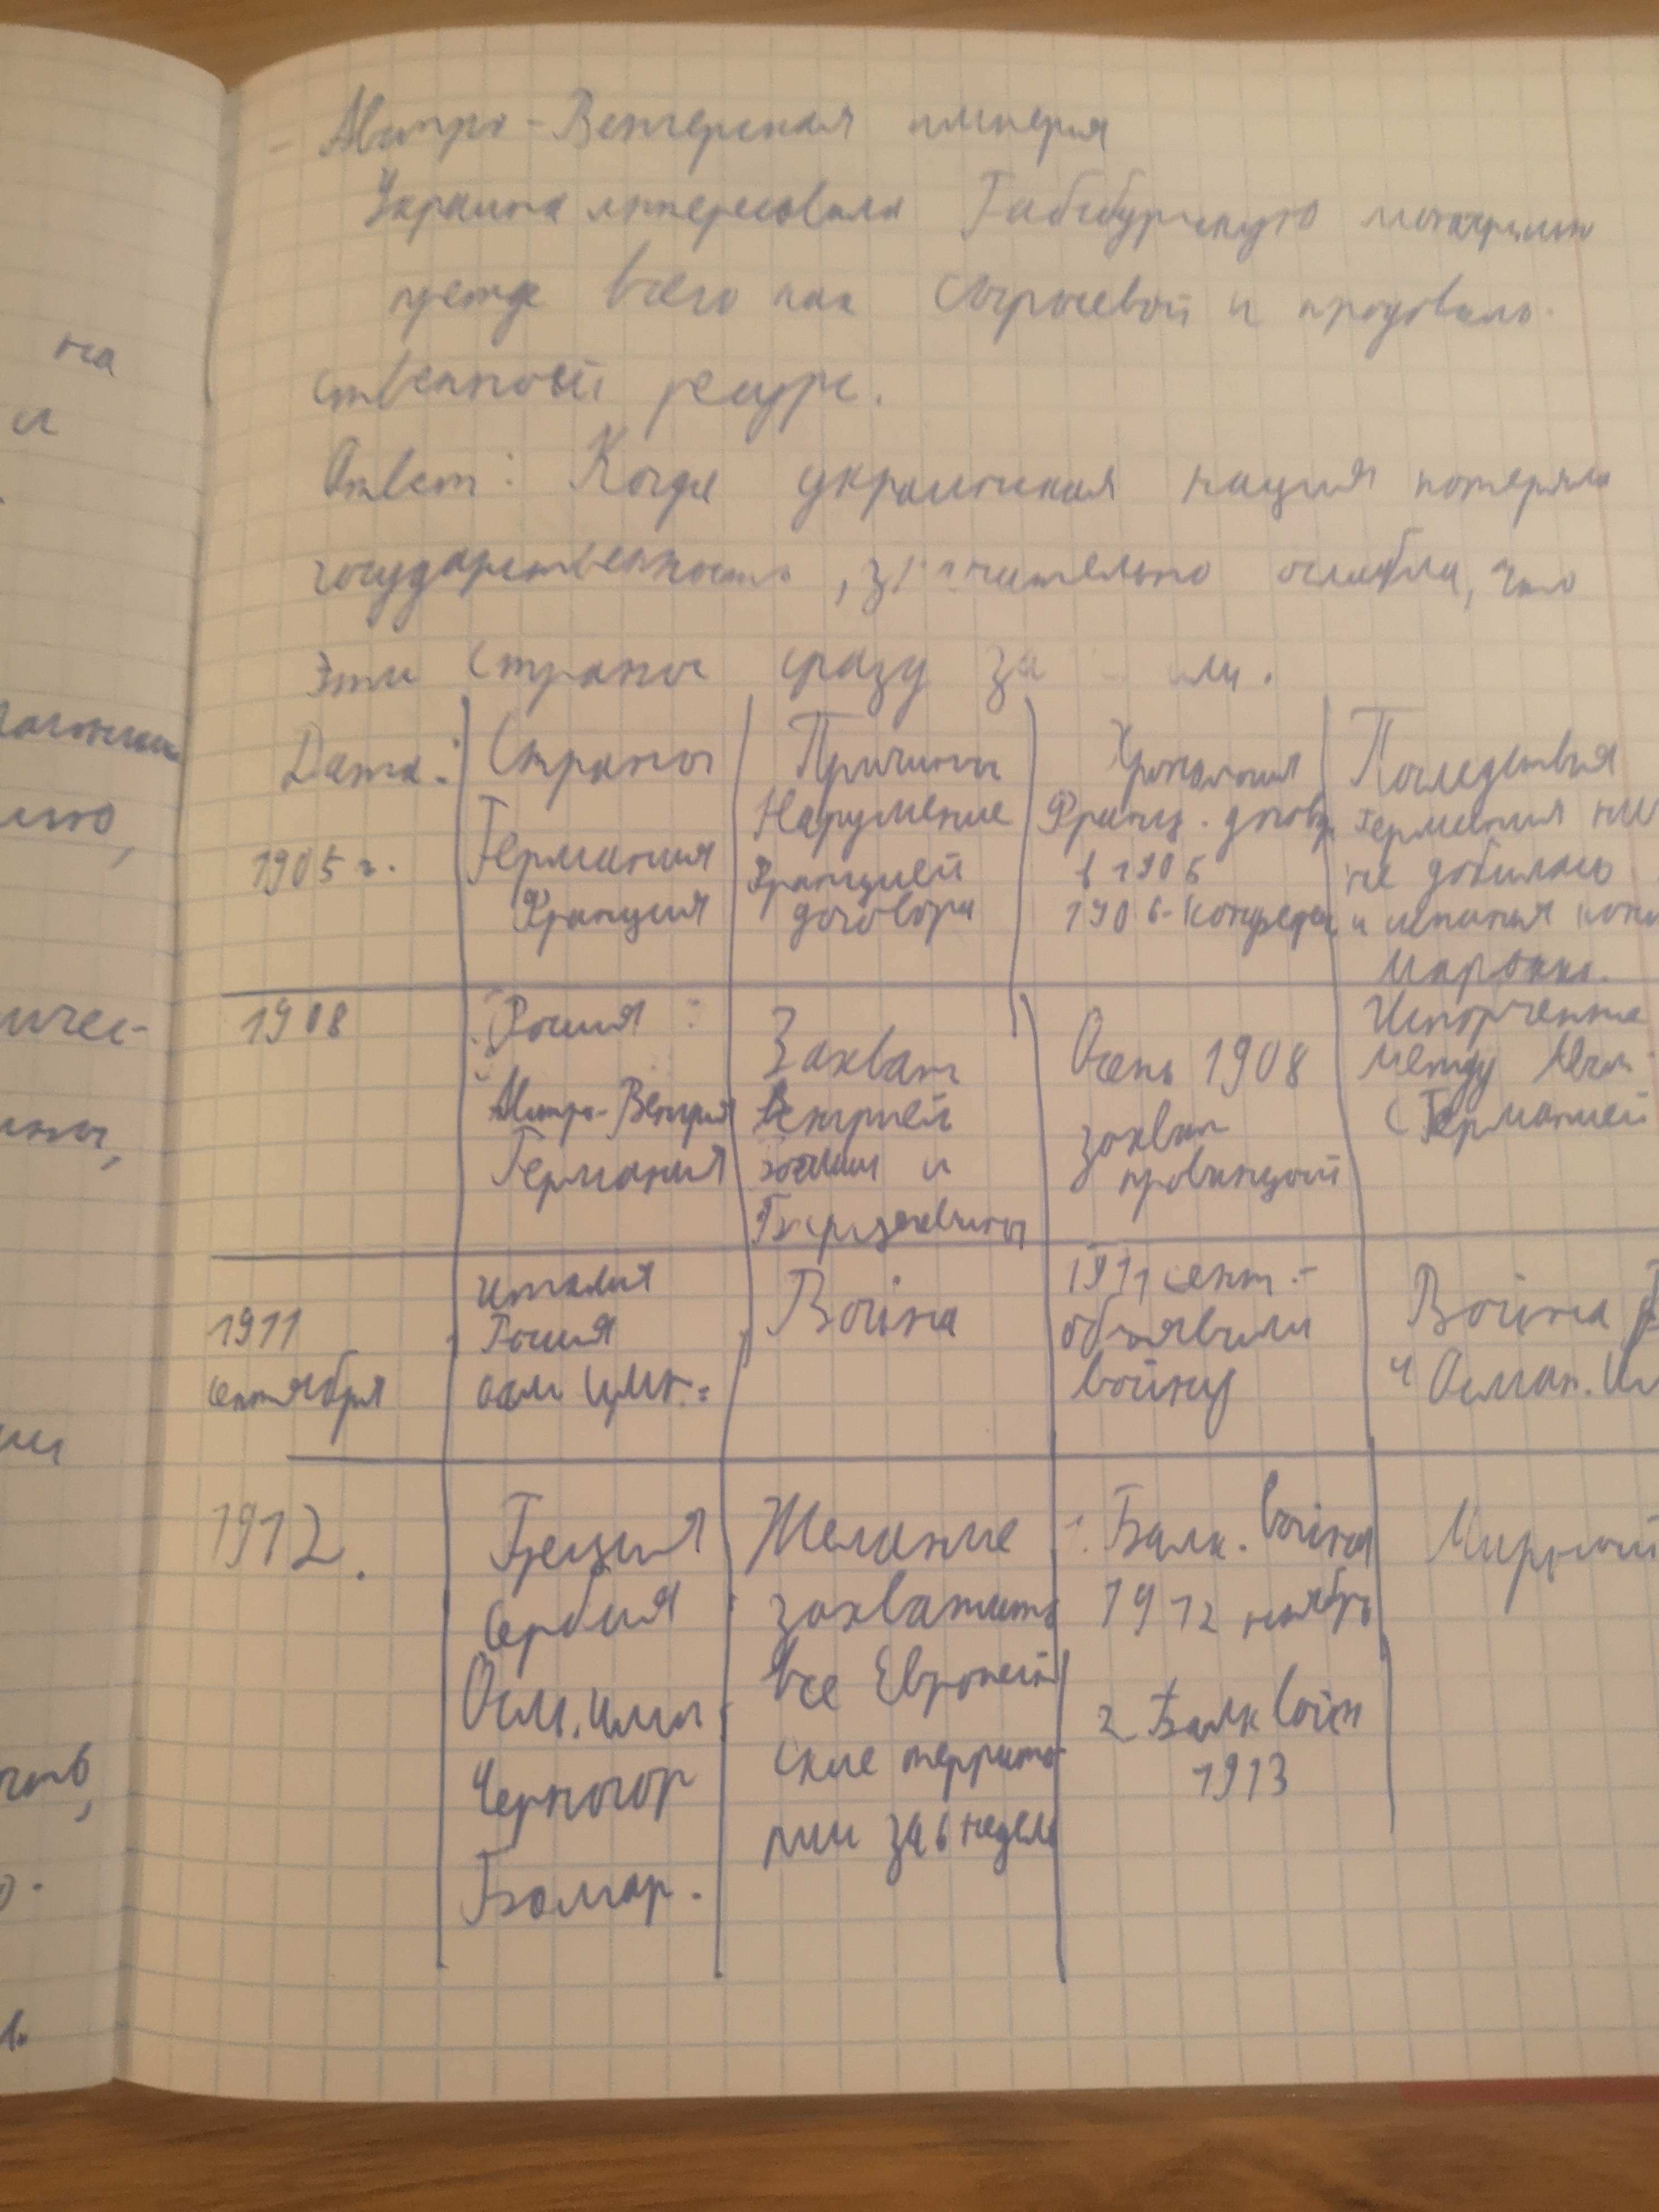 на
и
- Австро-Венгерская империя
Украина интересовала Габсбургскую монархию
прежде всего как сырьевой и продоволь-
ственный ресурс.
Ответ: Когда украинская нация потеряла
государственность, значительно ослабла, что
Эти страны сразу
Дата: Страны Причины Хронология Последствия
1905 г. Германия Франция
Нарушение Францией договора
Франц. договор в 1905
1906-конферен
Германия не добилась
и
Марокко.
1908
Россия
Австро-Венгрия
Германия
Захват
Венгрией
Боснии и
Герцеговины
Осень 1908
захват
провинций
Испорченные
между Авст
с Германией
1911
сентября
Италия
Россия
осм имп.
Война
1911 сент. -
объявили
войну
Война
и Осман. Им
1912.
Греция
Сербия
Осм. имп
Черногор
Болгар.
Желание
захватить
все Европей
ские террито-
рии за 6 недель
1. Балк. война
1912 ноябрь
2 Балк войн
1913
Мирный